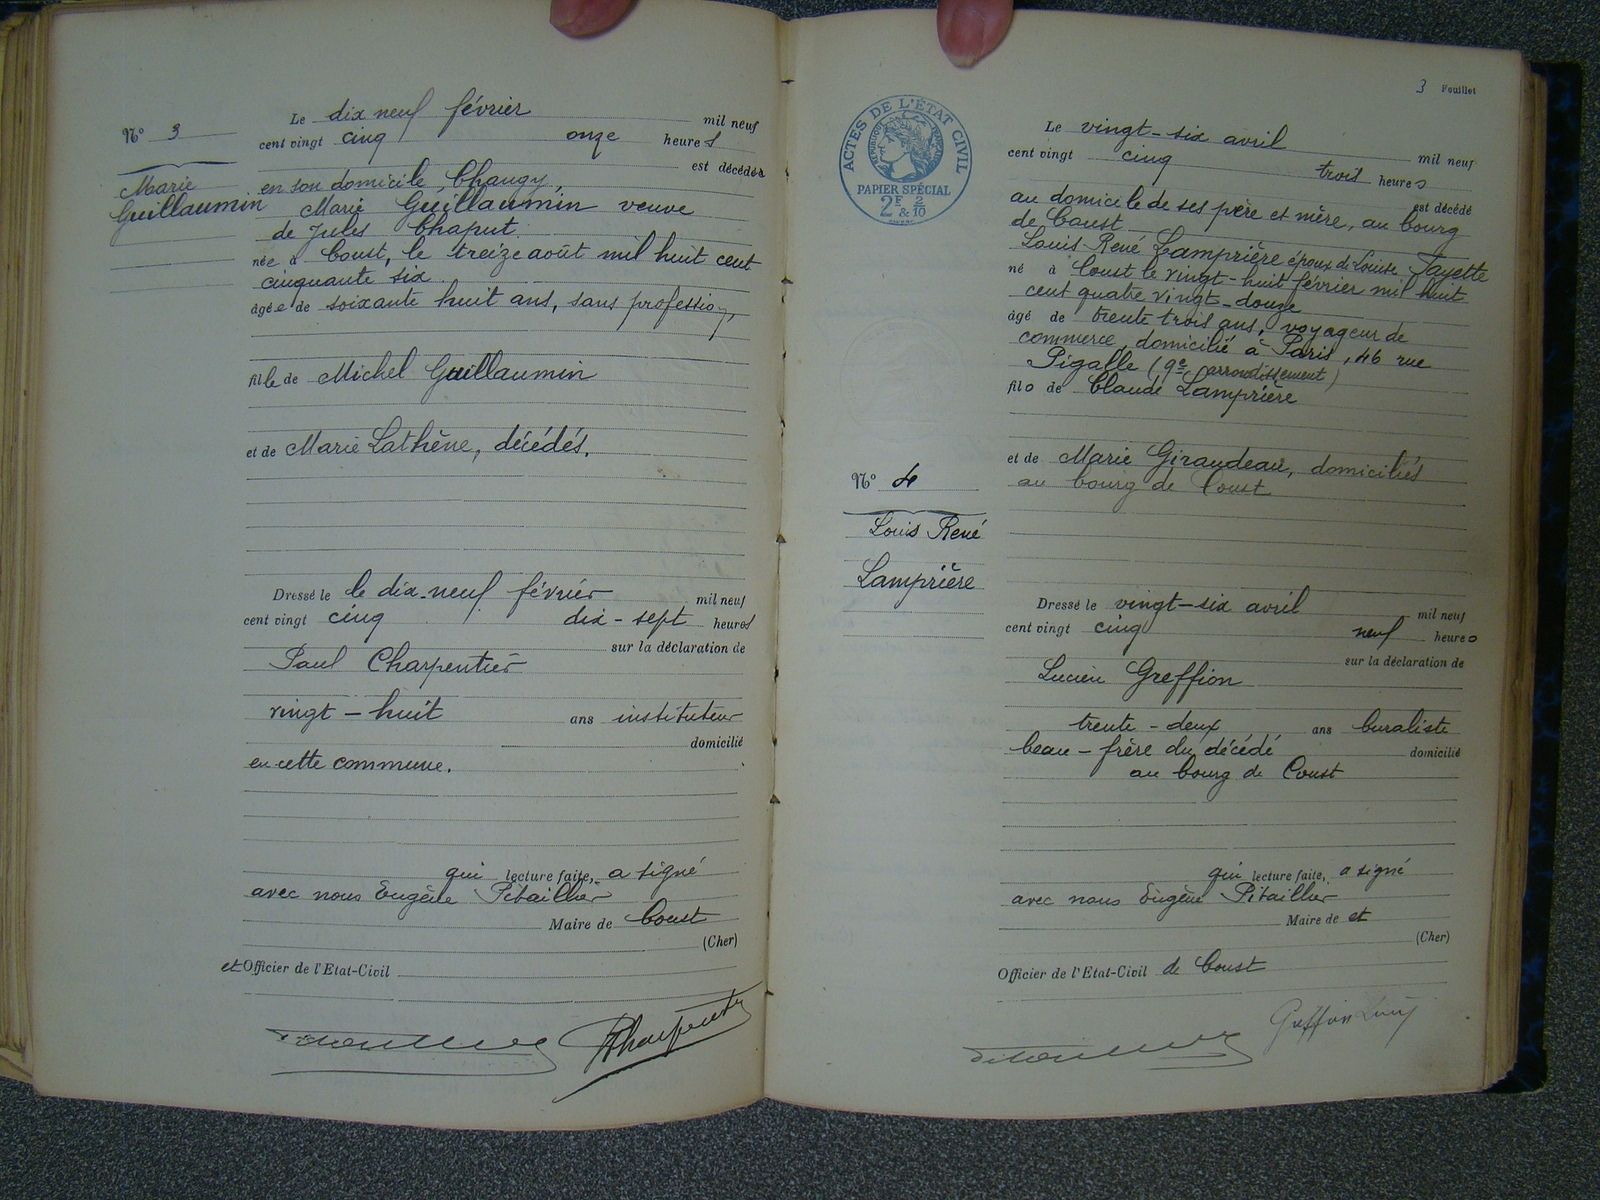 Nº 3
Marie
Guillaumin
Le dix neuf février mil neuf
cent vingt cinq onze heures
est décédée
en son domicile, Changy,
Marie Guillaumin veuve
de Jules Chaput.
née à Coust, le treize août mil huit cent
cinquante six.
âgée de soixante huit ans, sans profession,
fille de Michel Guillaumin
et de Marie Lathène, décédés.
Dressé le le dix-neuf février mil neuf
cent vingt cinq dix-sept heures
sur la déclaration de
Paul Charpentier
vingt-huit ans instituteur
domicilié
en cette commune.
qui lecture faite, a signé
avec nous Eugène Pitaillier
Maire de Coust
(Cher)
et Officier de l'Etat-Civil
Charpentier
3 Feuillet
ACTES DE L'ÉTAT CIVIL
RÉPUBLIQUE FRANÇAISE
PAPIER SPÉCIAL
2F & 2/10
Nº 4
Louis René
Lamprière
Le vingt-six avril mil neuf
cent vingt cinq trois heures
est décédé
au domicile de ses père et mère, au bourg
de Coust
Louis René Lamprière époux de Louise Fayette
né à Coust le vingt-huit février mil huit
cent quatre vingt-douze
âgé de trente trois ans, voyageur de
commerce, domicilié à Paris, 46 rue
Pigalle (9e arrondissement)
fils de Claude Lamprière
et de Marie Giraudeau, domiciliés
au bourg de Coust
Dressé le vingt-six avril mil neuf
cent vingt cinq neuf heures
sur la déclaration de
Lucien Greffion
trente-deux ans buraliste
beau-frère du décédé domicilié
au bourg de Coust
qui lecture faite, a signé
avec nous Eugène Pitaillier
Maire de et
(Cher)
Officier de l'Etat-Civil de Coust